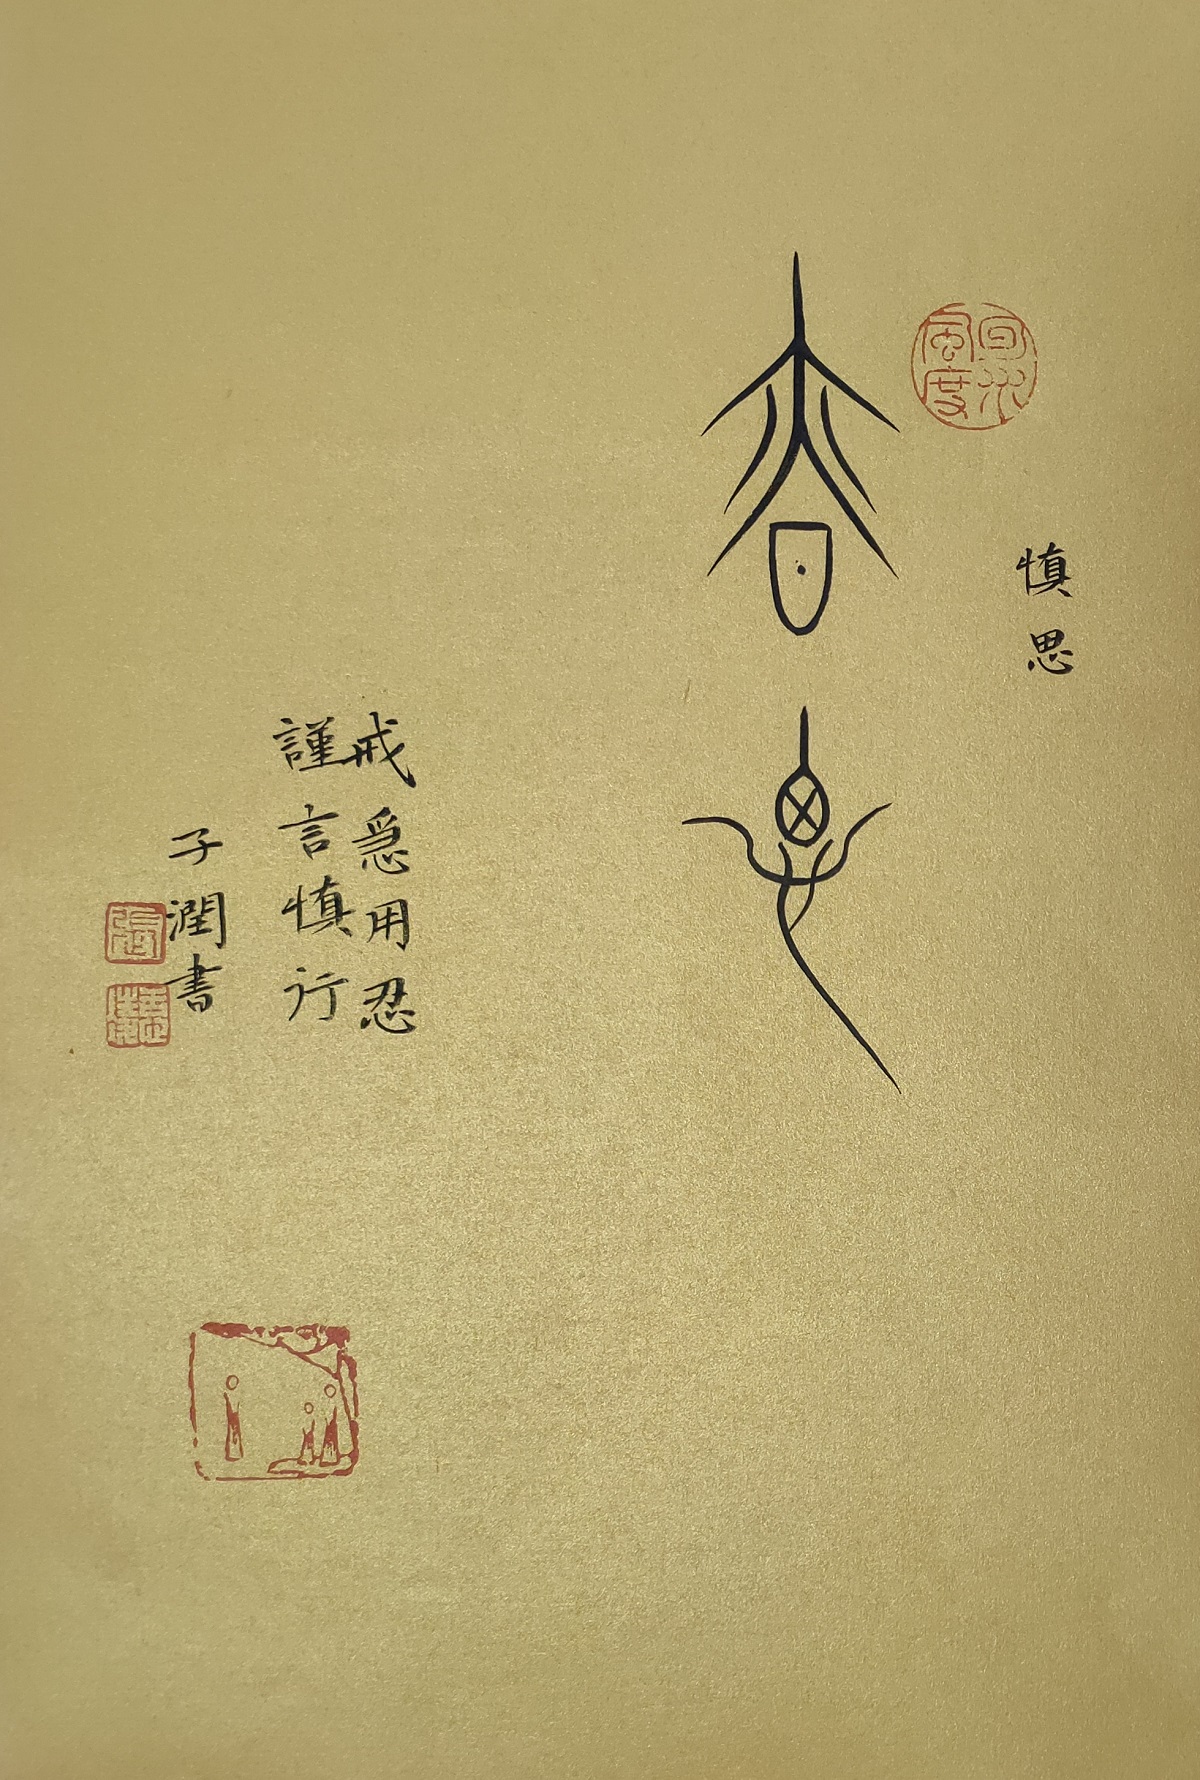 慎思
昚思
戒急用忍
謹言慎行
子潤書
張